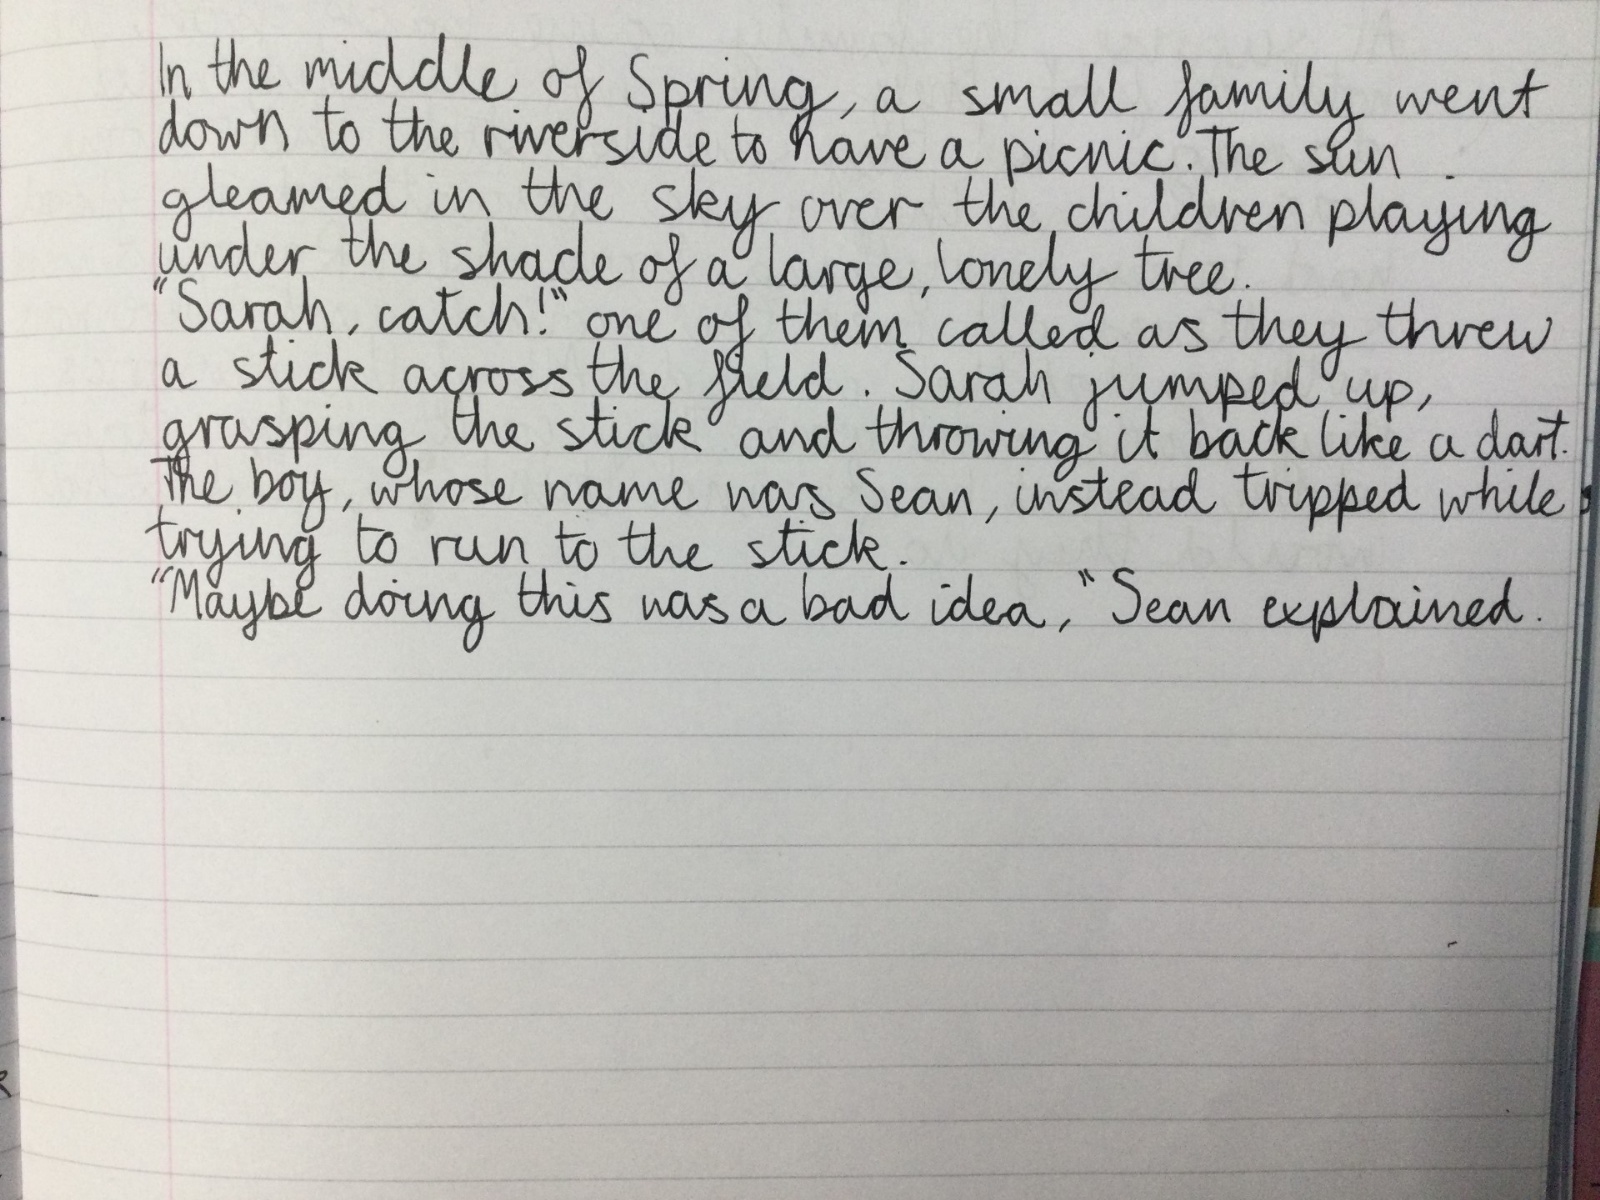 In the middle of Spring, a small family went
down to the riverside to have a picnic. The sun
gleamed in the sky over the children playing
under the shade of a large, lonely tree.
"Sarah, catch!" one of them called as they threw
a stick across the field. Sarah jumped up,
grasping the stick and throwing it back like a dart.
The boy, whose name was Sean, instead tripped while
trying to run to the stick.
"Maybe doing this was a bad idea," Sean explained.